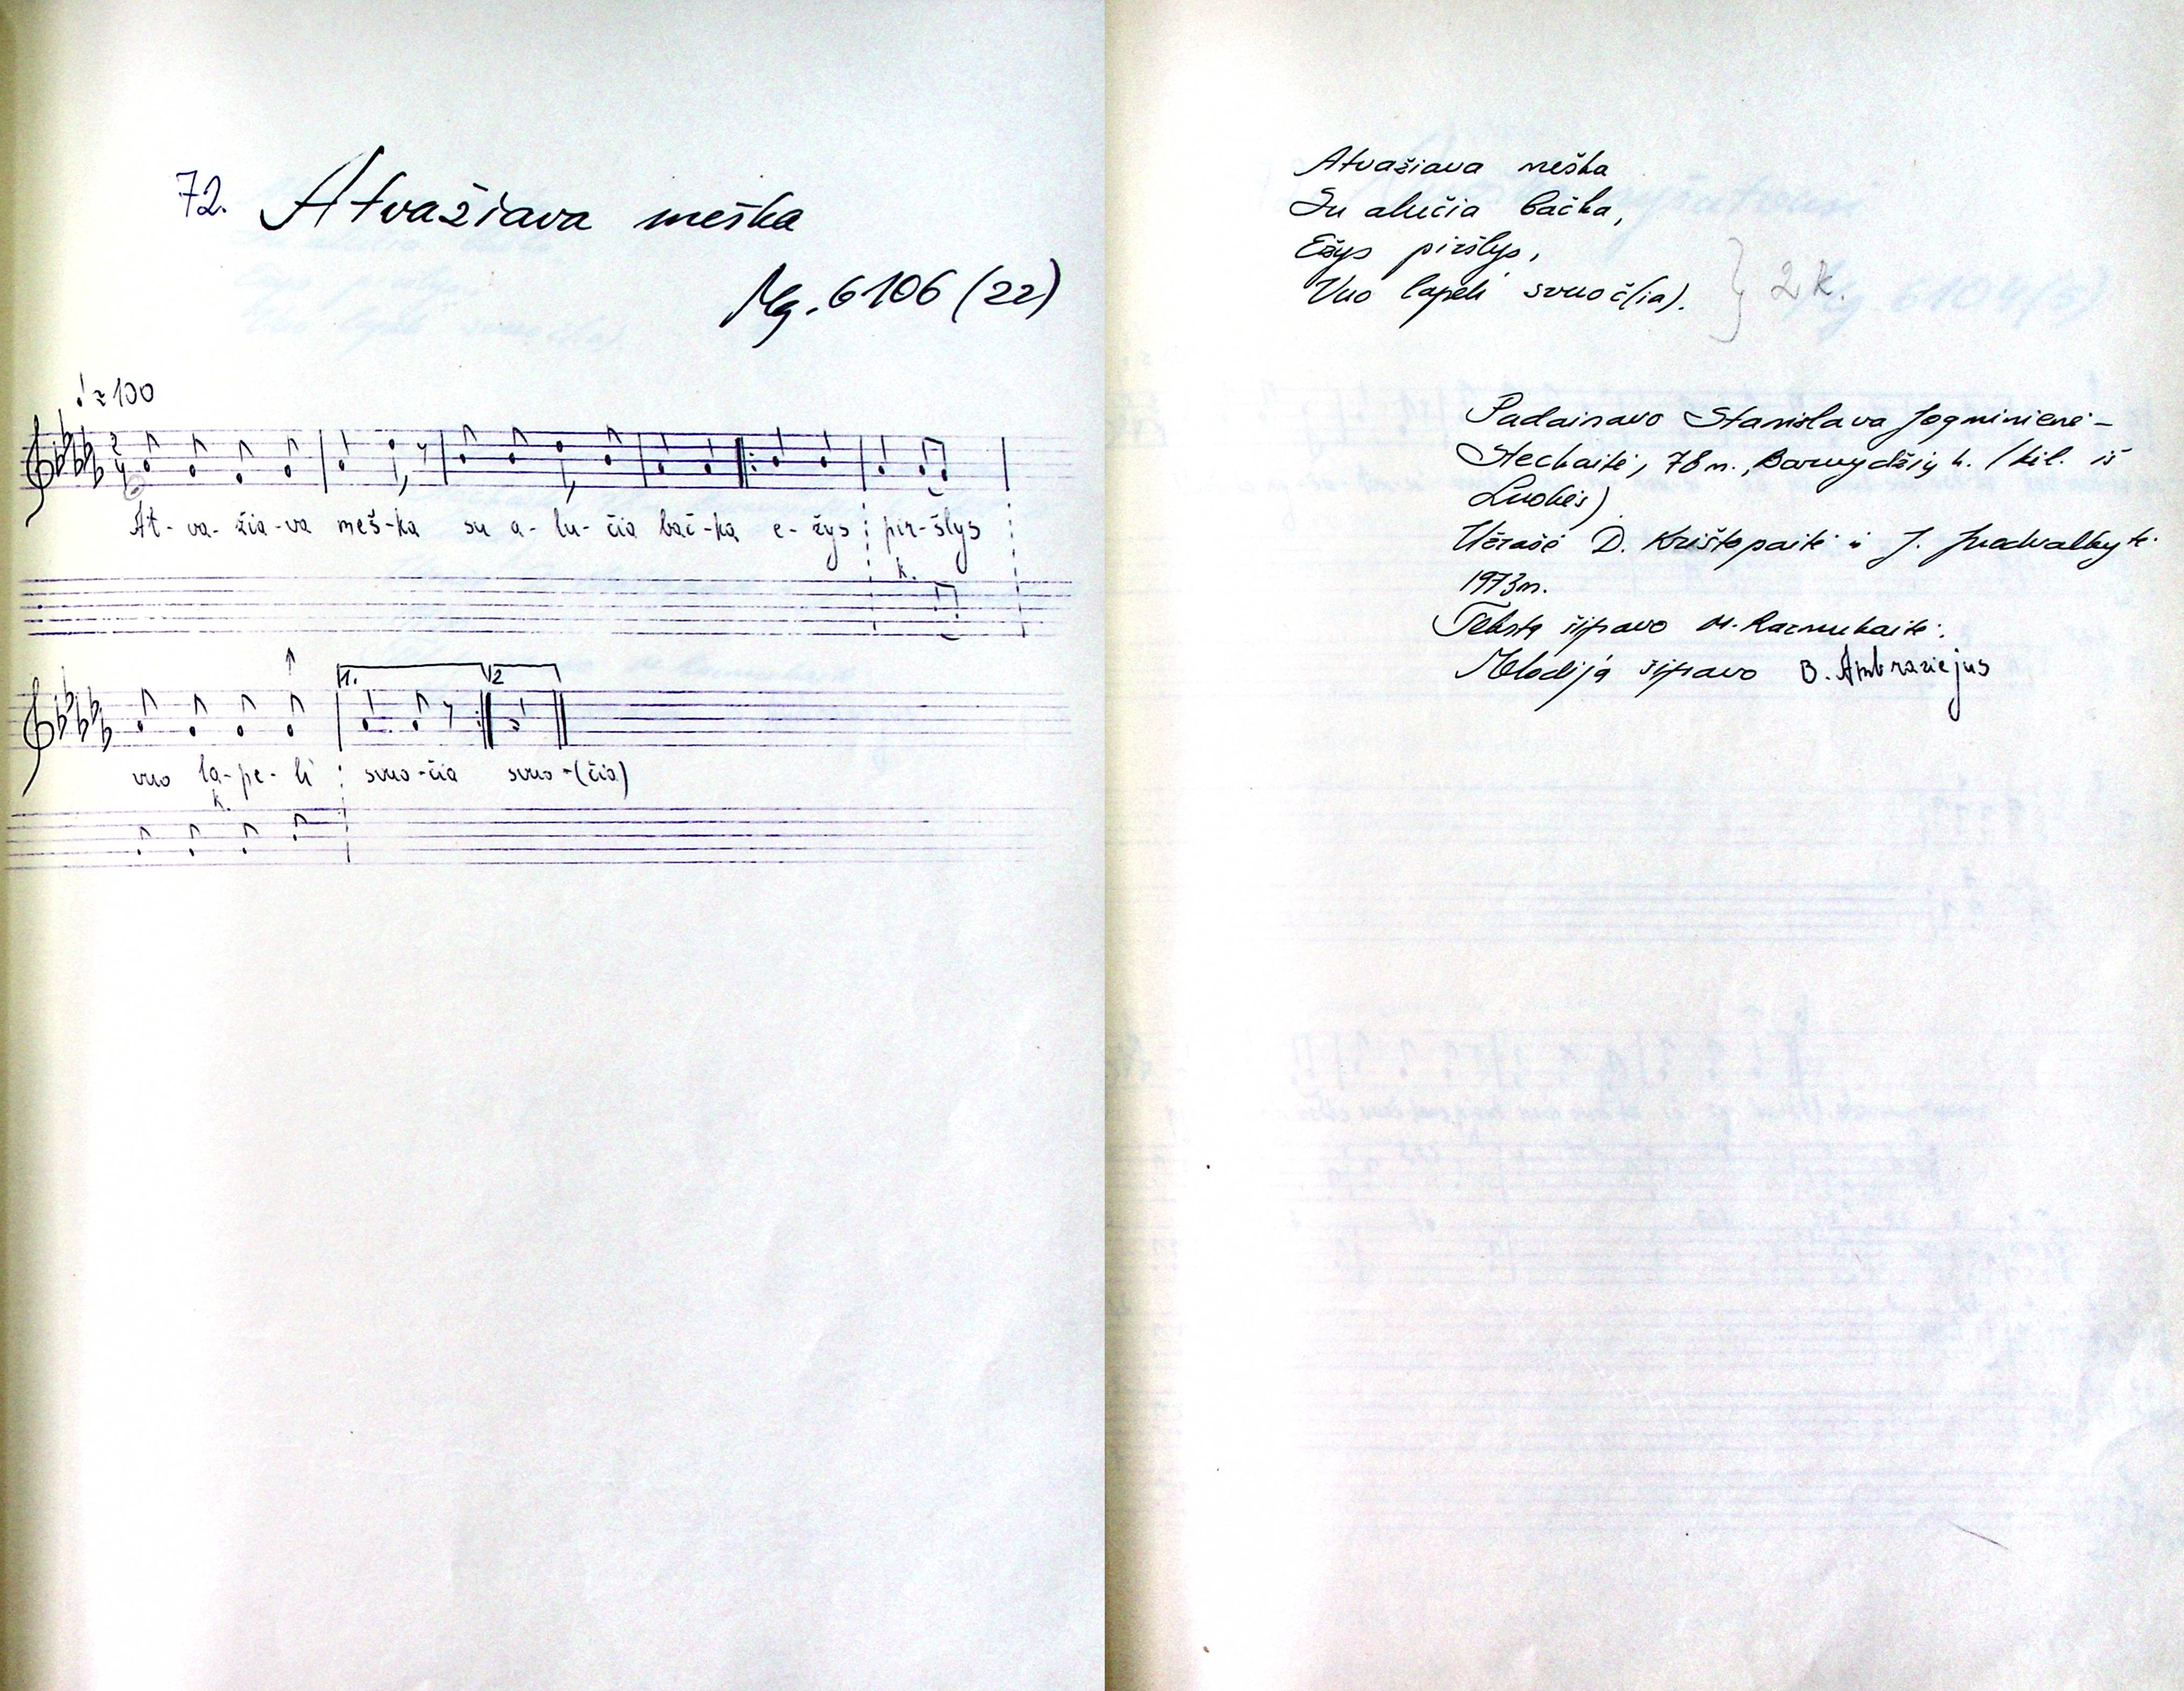 72. Atvažiava meška
Mg. 6106 (22)
♩≈100
2/4
At-va-žia-va meš-ka su a-lu-čia bač-ka e-žys pir-šlys
k.
1. 2
vuo la-pe-li svuo-čia svuo-(čia)
k.
Atvažiava meška
Su alučia bačka,
Ežys piršlys,
Vuo lapeli svuoč(ia).
2 k.
Padainavo Stanislava Jogminienė-
Stechaitė, 78 m., Barvydžių k. (kil. iš
Luokės)
Užrašė D. Krištopaitė ir J.
1973 m.
Tekstą šifravo M. Razmukaitė.
Melodiją šifravo B. Ambraziejus